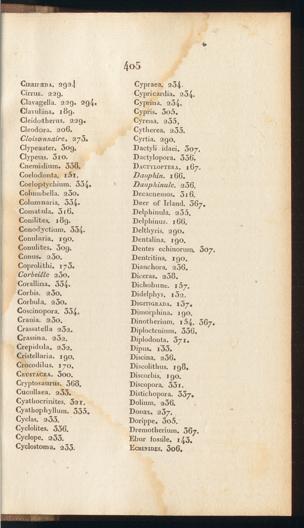 405
CIRRIPÆDA. 292.
Cirrus. 229.
Clavagella. 229. 294.
Clavulina. 189.
Cleidotherus. 229.
Cleodora. 206.
Cloisonnaire. 273.
Clypeaster. 309.
Clypeus. 310.
Cnemidium. 336.
Coelodonta. 151.
Coeloptychium. 334.
Columbella. 230.
Columnaria. 334.
Comatula. 316.
Conilites. 189.
Conodyctium. 334.
Conularia. 190.
Conulites. 309.
Conus. 230.
Coprolithi. 173.
Corbeille 230.
Corallina. 334.
Corbis. 230.
Corbula. 230.
Coscinopora. 334.
Crania. 230.
Crassatella 232.
Crassina. 232.
Crepidula. 232.
Cristellaria. 190.
Crocodilus. 170.
CRUSTACEA. 300.
Cryptosaurus. 368.
Cucullaea. 233.
Cyathocrinites. 321.
Cyathophyllum. 335.
Cyclas. 233.
Cyclolites. 336.
Cyclope. 233.
Cyclostoma. 233.
Cypraea. 234.
Cypricardia. 234.
Cyprina. 234.
Cypris. 305.
Cyrena. 235.
Cytherea. 235.
Cyrtia. 290.
Dactyli idaei. 307.
Dactylopora. 336.
DACTYLOPTERA. 167.
Dauphin. 166.
Dauphinule. 236.
Decacnemos. 316.
Deer of Irland. 367.
Delphinula. 235.
Delphinus. 166.
Delthyris. 290.
Dentalina. 190.
Dentes echinorum. 307.
Dentritina. 190.
Dianchora. 236.
Diceras. 238.
Dichobune. 157.
Didelphys. 132.
DIGITIGRADA. 137.
Dimorphina. 190.
Dinotherium. 154. 367.
Diploctenium. 336.
Diplodonta. 371.
Dipus. 133.
Discina. 236.
Discolithus. 198.
Discorbis. 190.
Discopora. 331.
Distichopora. 337.
Dolium. 236.
Donax. 237.
Dorippe. 305.
Dremotherium. 367.
Ebur fossile. 143.
ECHINIDES. 306.